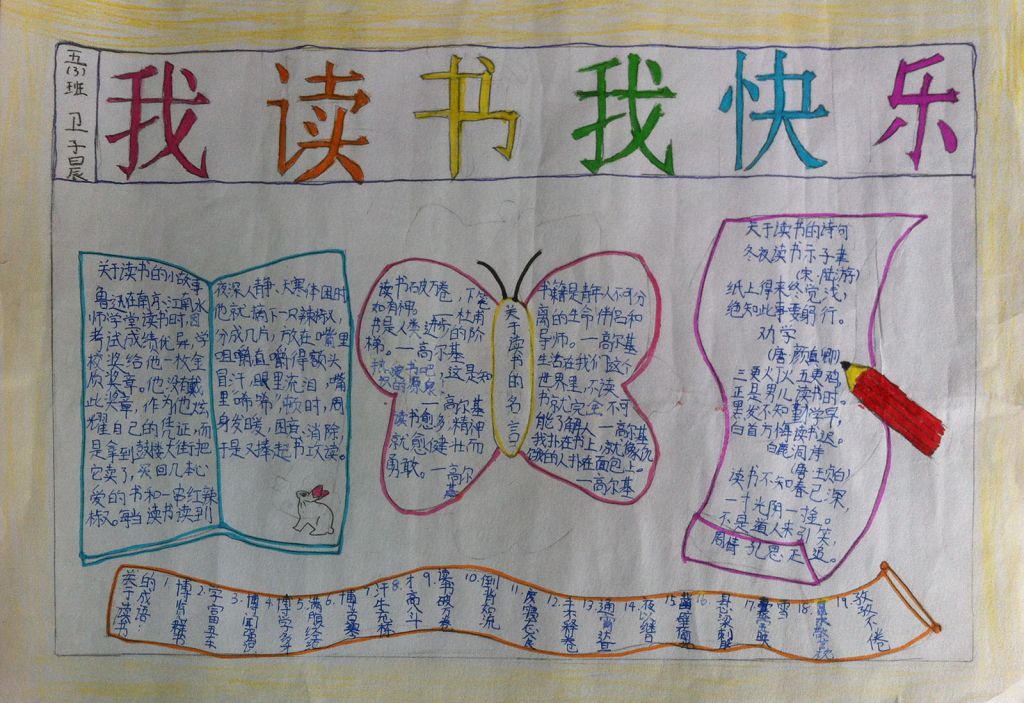 五(3)班 卫子晨
我读书我快乐
关于读书的小故事
鲁迅在南京江南水
师学堂读书时,因
考试成绩优异,学
校奖给他一枚金
质奖章。他没有戴
此奖章,作为炫
耀自己的凭证,而
是拿到鼓楼大街把
它卖了,买回几本心
爱的书和一串红辣
椒。每当读书读到
夜深人静、天寒体困时
他就摘下一只辣椒,
分成几片,放在嘴里
咀嚼,直嚼得额头
冒汗,眼里流泪,嘴
里唏唏,顿时,周
身发暖,困意消除,
于是又捧起书攻读。
读书破万卷,下笔
如有神。——杜甫
书是人类进步的阶
梯。——高尔基
热爱书吧,这是知
识的源泉!
——高尔基
读书愈多,精神
就愈健壮而
勇敢。——高尔
基
关于读书的名言
书籍是青年人不可分
离的生命伴侣和
导师。——高尔基
生活在我们这个
世界里,不读
书就完全不可
能了解人——高尔基
我扑在书上,就像饥
饿的人扑在面包上。
——高尔基
关于读书的诗句
冬夜读书示子聿
(宋·陆游)
纸上得来终觉浅,
绝知此事要躬行。
劝学
(唐·颜真卿)
三更灯火五更鸡,
正是男儿读书时。
黑发不知勤学早,
白首方悔读书迟。
白鹿洞
(唐·王贞白)
读书不知春已深,
一寸光阴一寸金。
不是道人来引笑,
周情孔思正追。
关于读书的成语:
1.博览群书
2.学富五车
3.博闻强识
4.博学多才
5.满腹经纶
7.汗牛充栋
8.才高八斗
9.读书破万卷
10.倒背如流
11.废寝忘食
12.手不释卷
13.通宵达旦
14.夜以继日
15.凿壁偷
16.悬梁刺股
17.雪
18.
19.孜孜不倦